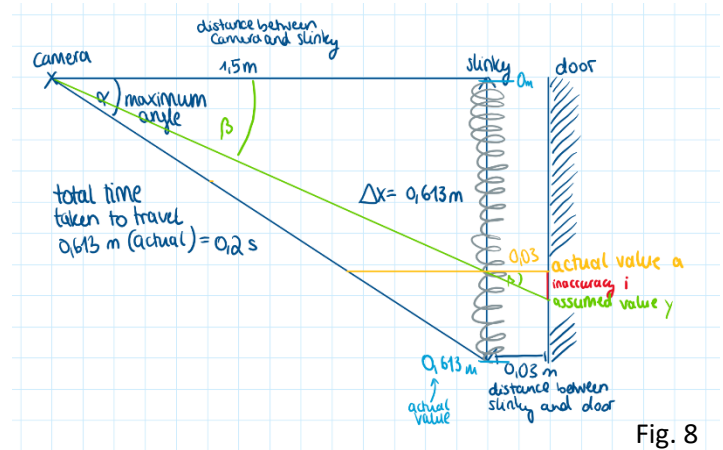 distance between
camera and slinky
camera
1,5m
slinky
door
0m
α
maximum
angle
β
total time
taken to travel
0,613 m (actual) = 0,2 s
Δx = 0,613m
0,03
actual value a
β
inaccuracy i
assumed value y
0,613 m
0,03 m
actual
value
distance between
slinky and door
Fig. 8